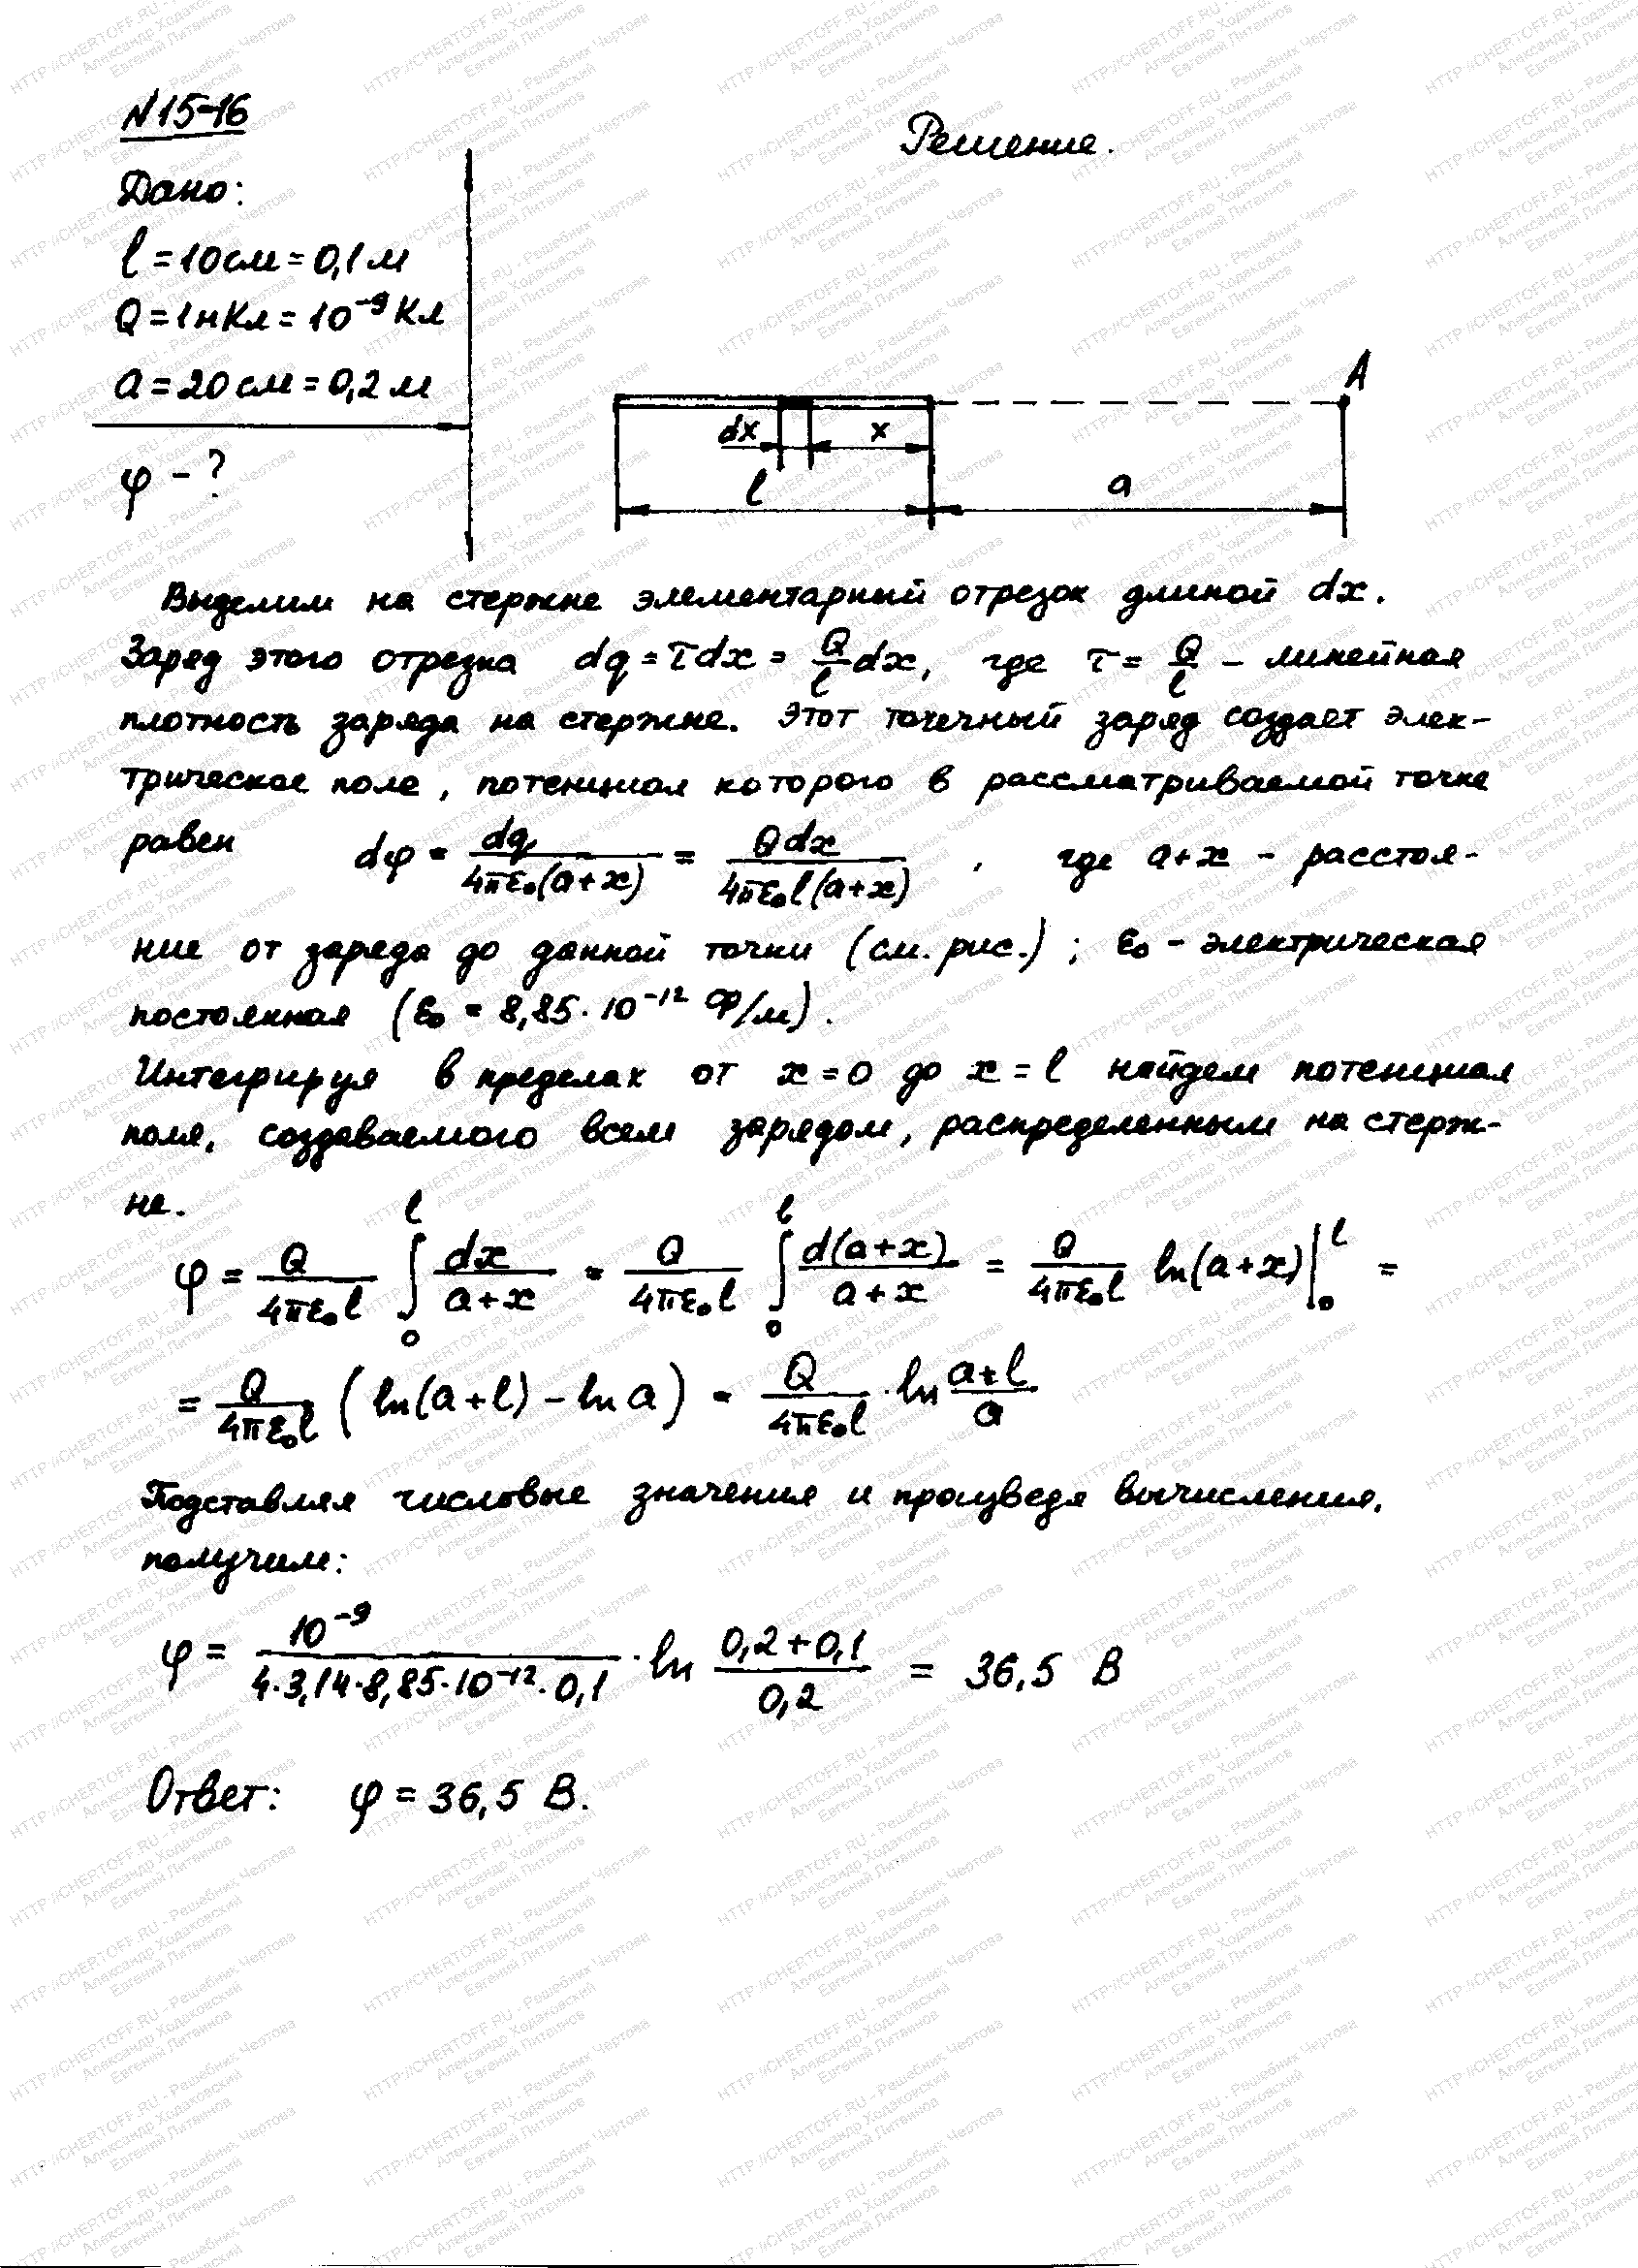 N15-16
Решение.
Дано:
l = 10 см = 0,1 м
Q = 1 нКл = 10⁻⁹ Кл
a = 20 см = 0,2 м
φ - ?
A
dx x
l a
Выделим на стержне элементарный отрезок длиной dx.
Заряд этого отрезка dq = τdx = Q/l dx, где τ = Q/l - линейная
плотность заряда на стержне. Этот точечный заряд создает элек-
трическое поле, потенциал которого в рассматриваемой точке
равен dφ = dq/(4πε₀(a+x)) = Qdx/(4πε₀l(a+x)) , где a+x - расстоя-
ние от заряда до данной точки (см. рис.) ; ε₀ - электрическая
постоянная (ε₀ = 8,85·10⁻¹² Ф/м).
Интегрируя в пределах от x=0 до x=l найдем потенциал
поля, создаваемого всем зарядом, распределенным на стерж-
не.
φ = Q/(4πε₀l) ∫₀ˡ dx/(a+x) = Q/(4πε₀l) ∫₀ˡ d(a+x)/(a+x) = Q/(4πε₀l) ln(a+x)|₀ˡ =
= Q/(4πε₀l) (ln(a+l) - ln a) = Q/(4πε₀l) · ln (a+l)/a
Подставляя числовые значения и произведя вычисления,
получим:
φ = 10⁻⁹/(4·3,14·8,85·10⁻¹²·0,1) · ln (0,2+0,1)/0,2 = 36,5 В
Ответ: φ = 36,5 В.
HTTP://CHERTOFF.RU - Решебник Чертова
Александр Ходаковский
Евгений Литвинов